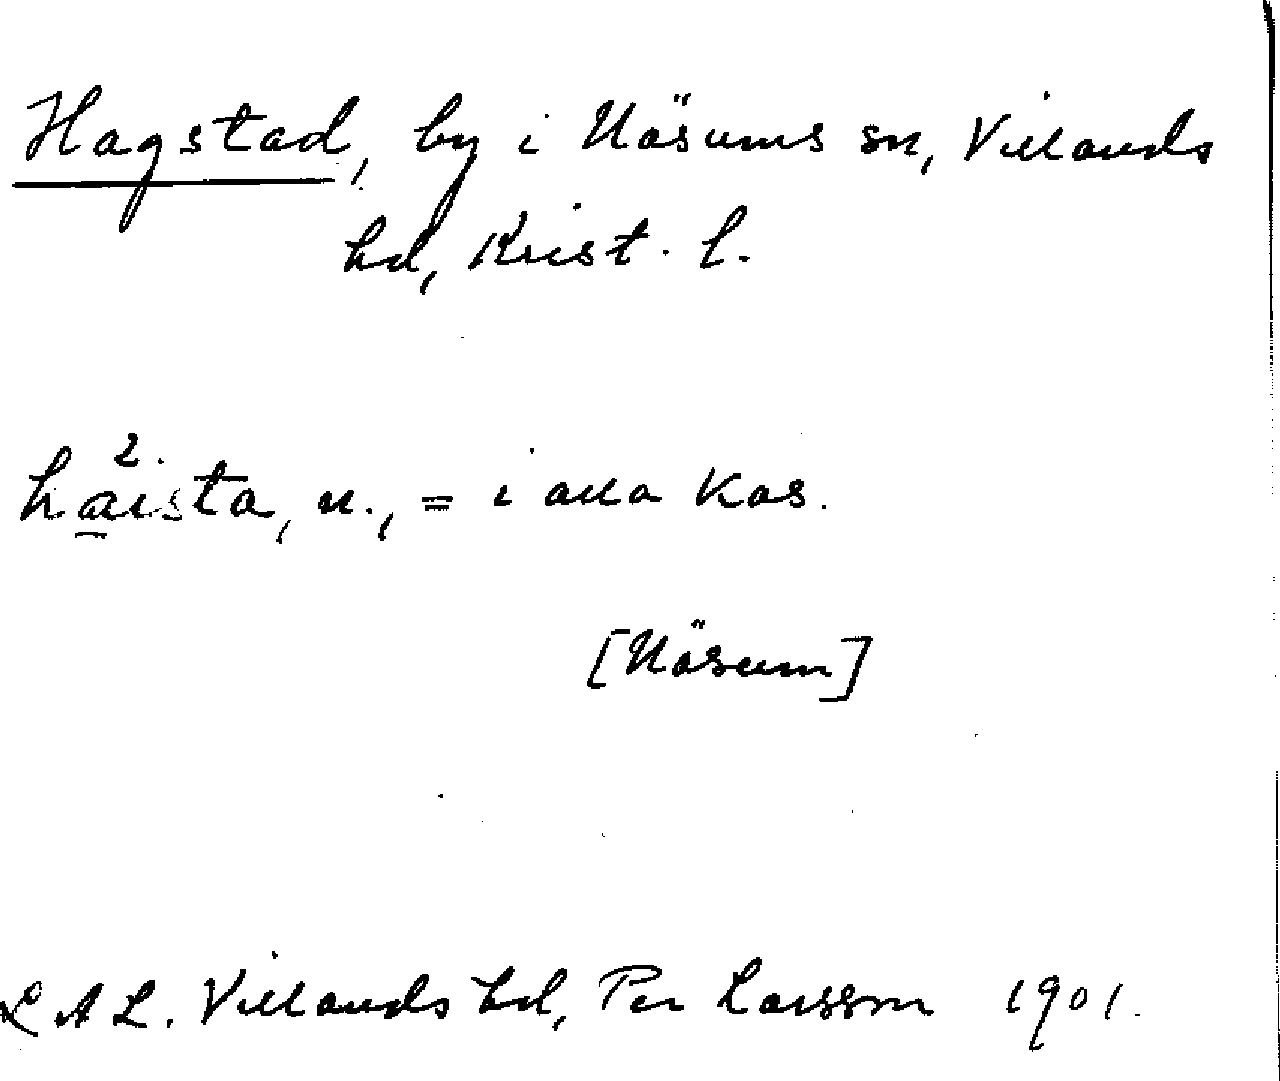 Hagstad, by i Näsums sn, Villands
hd, Krist. l.
ha²ista, n., = i alla kas.
[Näsum]
L A L. Villands hd, Per Larsson 1901.